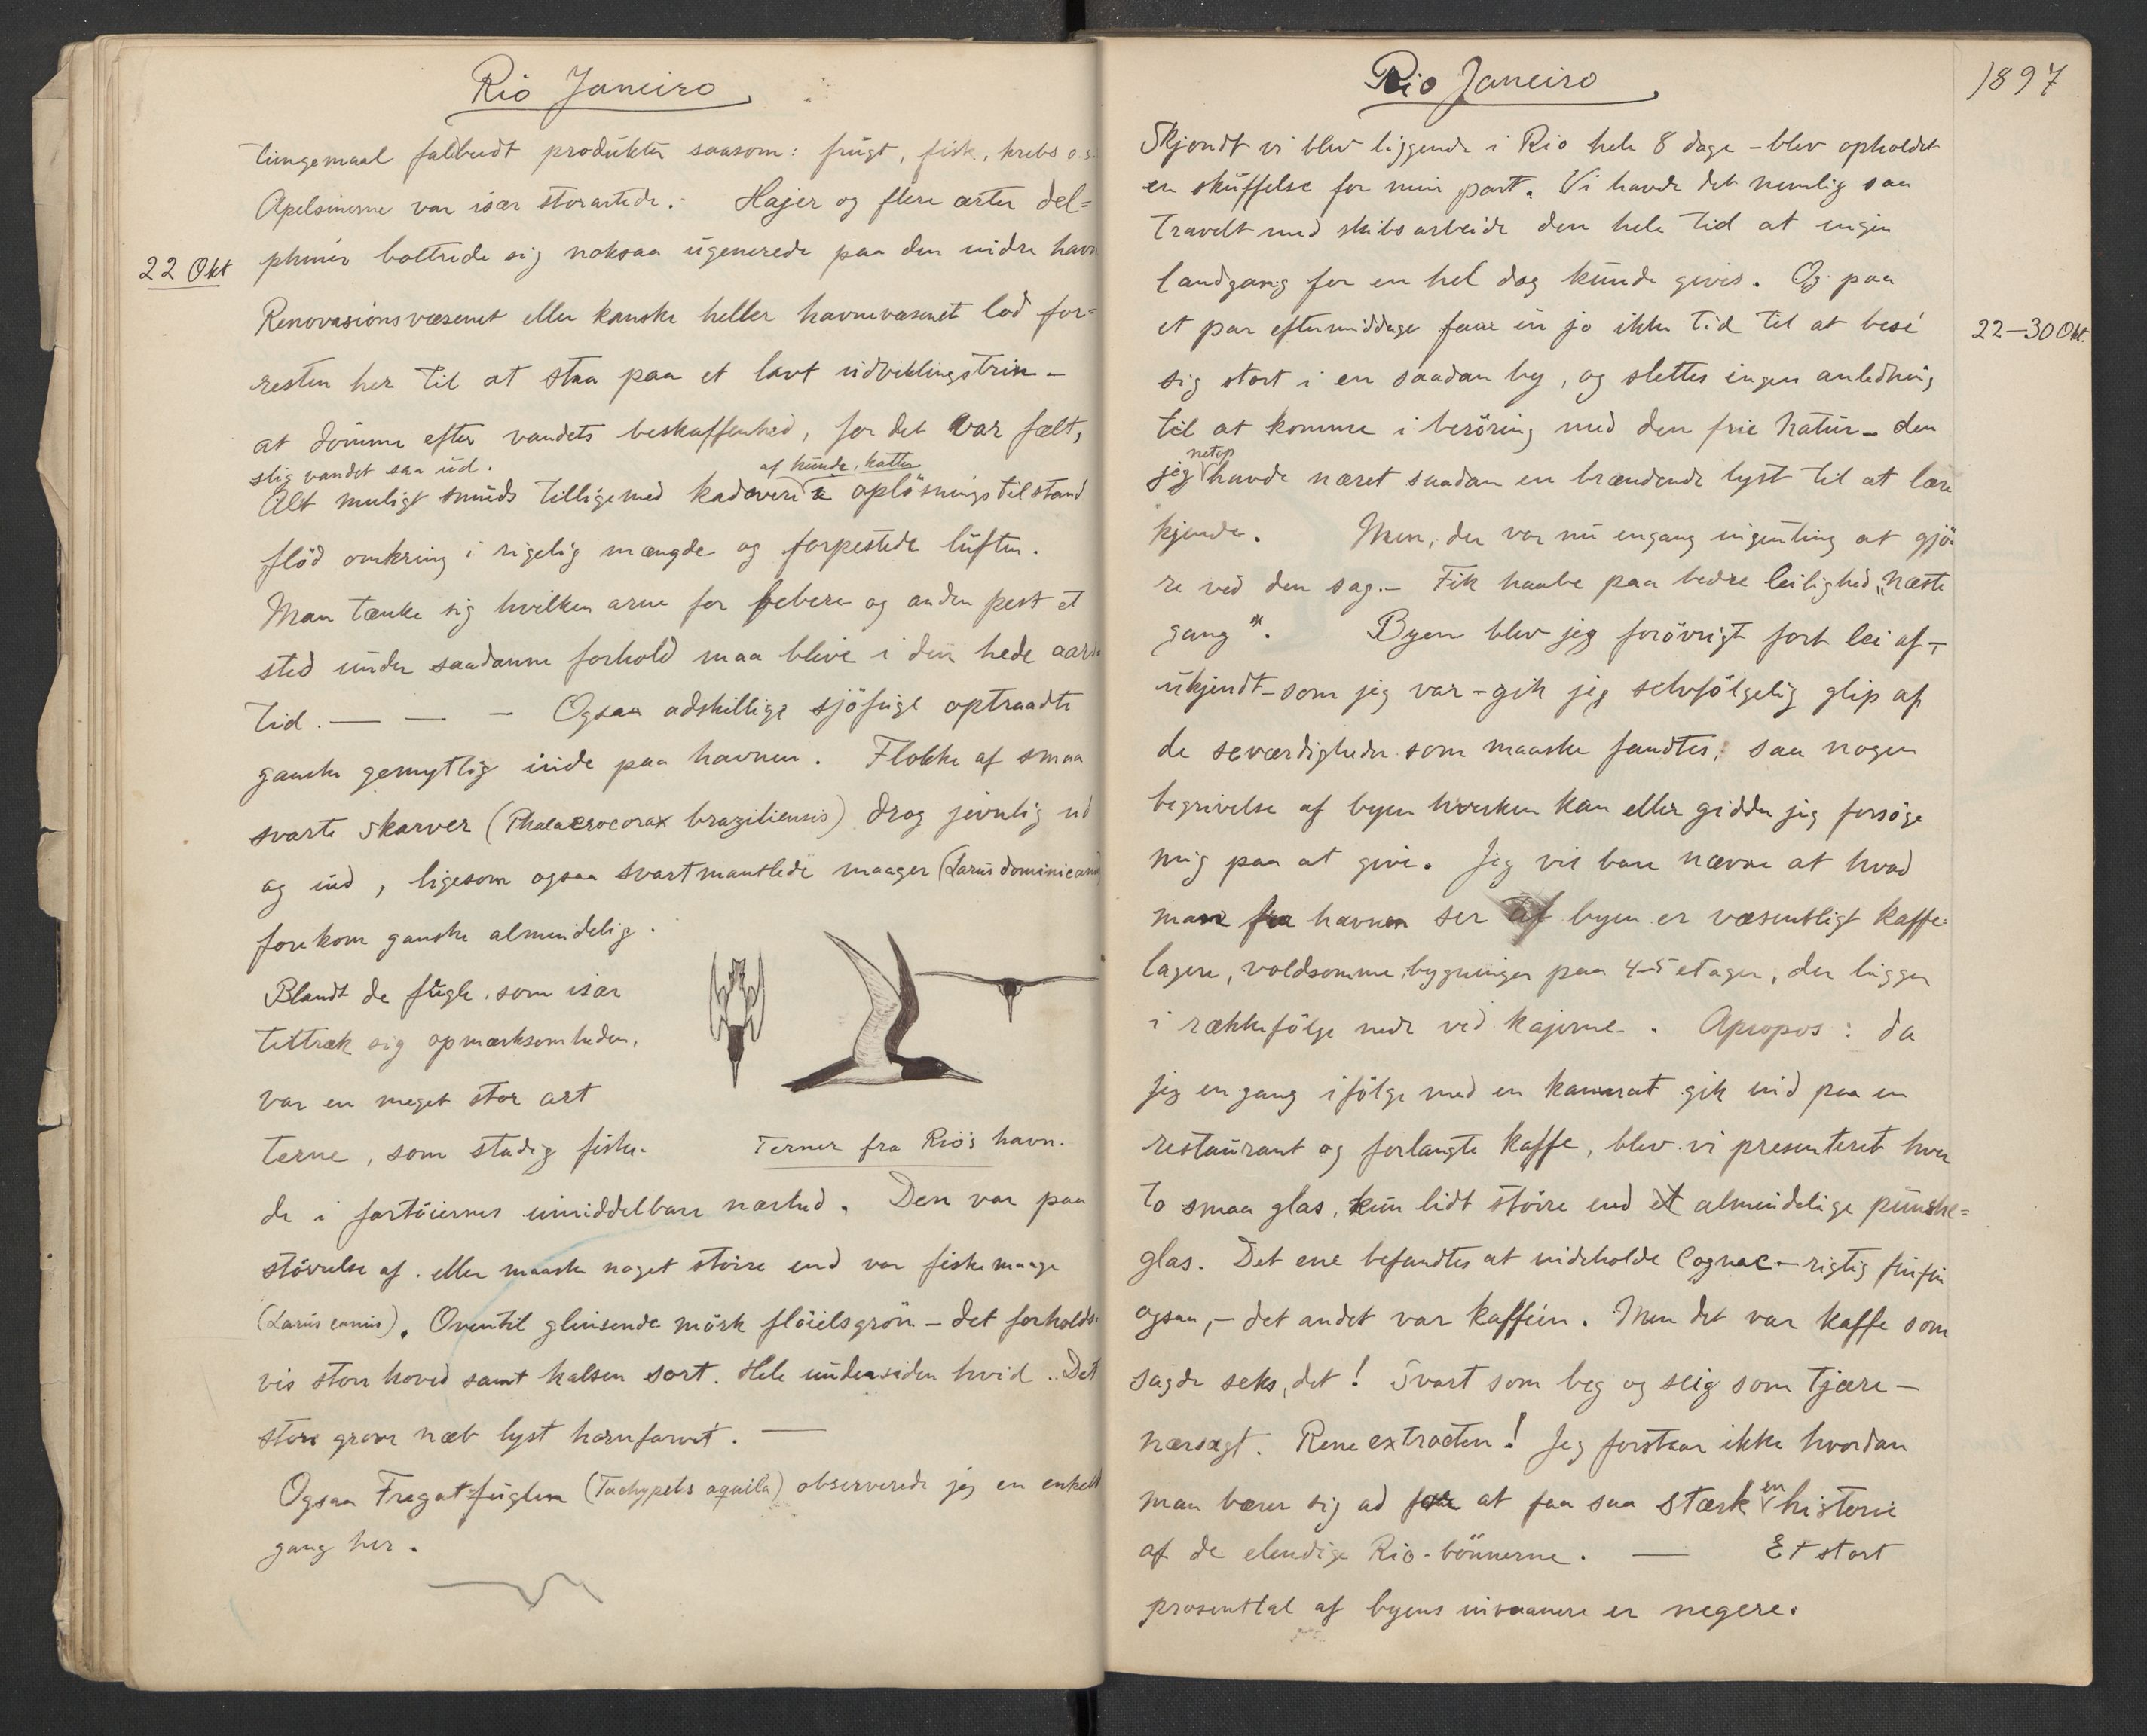 Rio Janeiro
tungemaal falbudt produkter saasom: frugt, fisk, krebs o.s.
Apelsinerne var især storartede. Hajer og flere arter del=
22 Okt
phiner boltrede sig noksaa ugenerede paa den indre havn
Renovasionsvæsenet eller kanske heller havnevæsenet lod for=
resten her til at staa paa et lavt udviklingstrin –
at dømme efter vandets beskaffenhed, for det var fælt,
slig vandet saa ud.
af hunde, katter
Alt muligt smuds tilligemed kadavere i opløsningstilstand
flöd omkring i rigelig mængde og forpestede luften.
Man tænke sig hvilken arne for febere og anden pest et
sted under saadanne forhold maa blive i den hede aars
tid. — — – Ogsaa adskillige sjöfugl optraadte
ganske gemytlig inde paa havnen. Flokke af smaa
svarte skarver (Phalacrocorax braziliensis) drog jevnlig ud
og ind, ligesom ogsaa svartmantlede maager (Larus dominicanus
forekom ganske almindelig.
Blandt de fugle, som især
tiltrak sig opmærksomheden,
var en meget stor art
terne, som stadig fiske-
Terner fra Rio's havn.
de i fartöiernes umiddelbare nærhed. Den var paa
störrelse af eller maaske noget större end vor fiskemaage
(Larus canus). Oventil glinsende mörk flöielsgrön – det forholds-
vis store hoved samt halsen sort. Hele undersiden hvid. Det
store grove næb lyst hornfarvet. —
Ogsaa Fregatfuglen (Tachypets aquila) observerede jeg en enkelt
gang her.
Rio Janeiro
1897
Skjöndt vi blev liggende i Rio hele 8 dage – blev opholdet
en skuffelse for min part. Vi havde det nemlig saa
travelt med skibsarbeide den hele tid at ingen
landgang for en hel dag kunde gives. Og paa
et par eftermiddage faar en jo ikke tid til at besé
22–30 Okt.
sig stort i en saadan by, og slettes ingen anledning
til at komme i beröring med den frie natur – den
netop
jeg havde næret saadan en brændende lyst til at lære
kjende. Men, der var nu engang ingenting at gjö-
re ved den sag. – Fik haabe paa bedre leilighed „næste
gang". Byen blev jeg forövrigt fort lei af –
ukjendt – som jeg var – gik jeg selvfölgelig glip af
de seværdigheder som maaske fandtes, saa nogen
begrivelse af byen hverken kan eller gidder jeg forsöge
mig paa at give. Jeg vil bare nævne at hvad
man fra havnen ser af byen er væsentligt kaffe-
lagere, voldsomme bygninger paa 4–5 etager, der ligger
i rækkefölge nede ved kajerne. Apropos: da
jeg en gang ifölge med en kamerat gik ind paa en
restaurant og forlangte kaffe, blev vi presenteret hver
to smaa glas, kun lidt större end et almindelige punshe=
glas. Det ene befandtes at indeholde Cognac – rigtig finfin
ogsaa, – det andet var kaffein. Men det var kaffe som
sagde seks, det! Svart som beg og seig som tjære –
næsagt. Rene extracten! Jeg forstaar ikke hvordan
man bærer sig ad for at faa saa stærk en historie
af de elendige Rio-bönnerne. — Et stort
prosenttal af byens invaanere er negere.